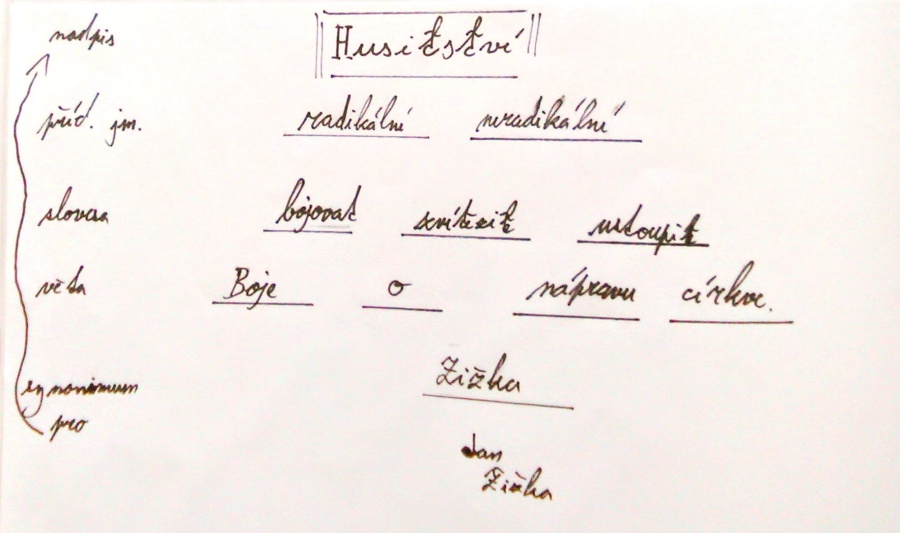 nadpis Husitství
příd. jm. radikální neradikální
slovesa bojovat zvítězit ustoupit
věta Boje o nápravu církve.
synonimum Žižka
pro Jan
Žižka